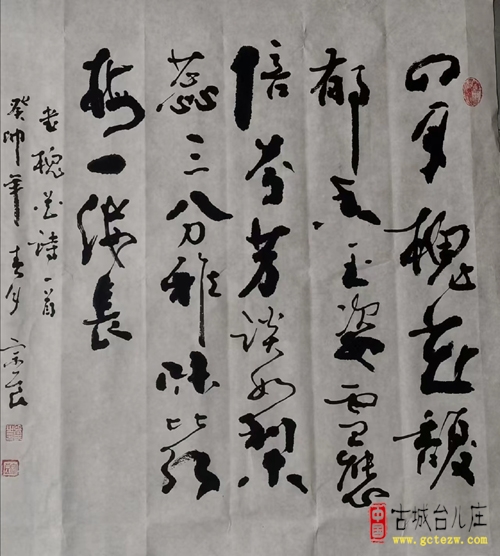 四月槐花馥
郁香玉姿雪態
倍芬芳談如梨
蕊三分雅味比紅
梅一線長
書槐花詩一首
癸卯年春月 宗良
中国
古城台儿庄
www.gctezw.com